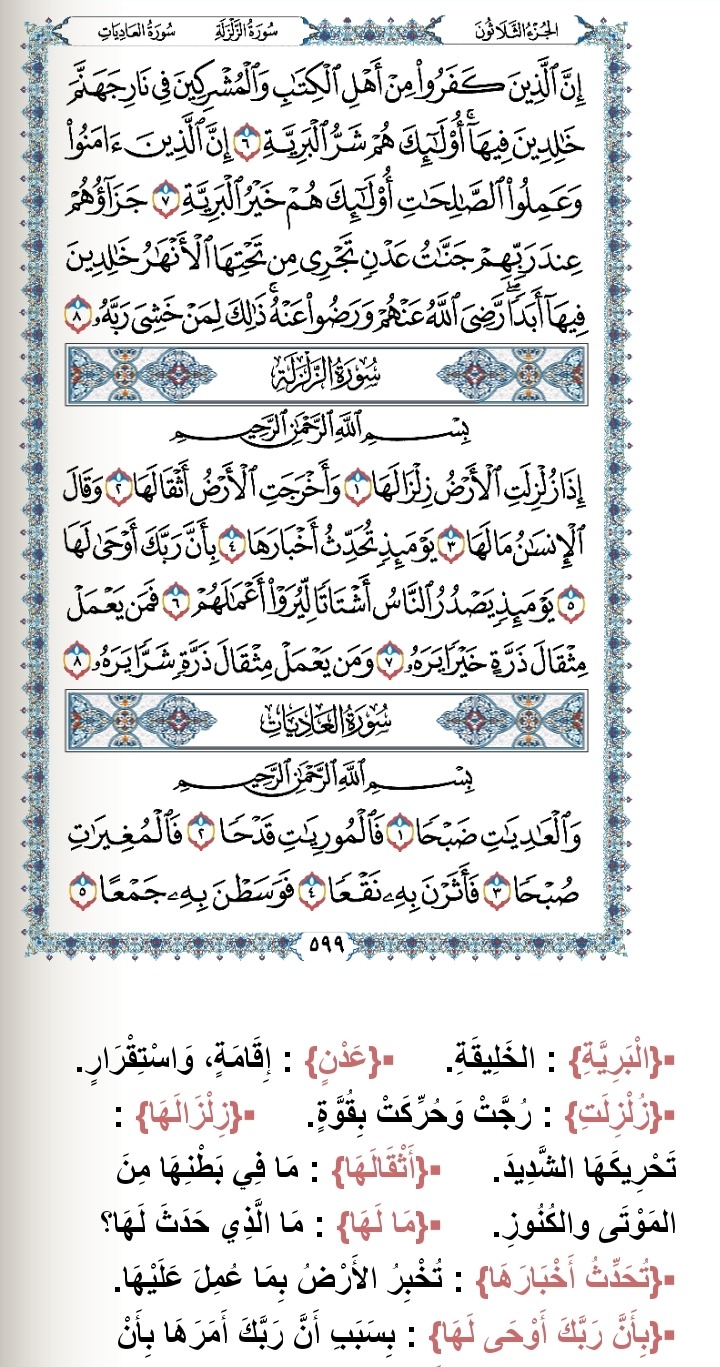 الجُزْءُ الثَّلَاثُونَ سُورَةُ الزَّلْزَلَةِ سُورَةُ العَادِيَاتِ
إِنَّ ٱلَّذِينَ كَفَرُواْ مِنْ أَهْلِ ٱلْكِتَٰبِ وَٱلْمُشْرِكِينَ فِى نَارِ جَهَنَّمَ
خَٰلِدِينَ فِيهَآۚ أُوْلَٰٓئِكَ هُمْ شَرُّ ٱلْبَرِيَّةِ ٦ إِنَّ ٱلَّذِينَ ءَامَنُواْ
وَعَمِلُواْ ٱلصَّٰلِحَٰتِ أُوْلَٰٓئِكَ هُمْ خَيْرُ ٱلْبَرِيَّةِ ٧ جَزَآؤُهُمْ
عِندَ رَبِّهِمْ جَنَّٰتُ عَدْنٍ تَجْرِى مِن تَحْتِهَا ٱلْأَنْهَٰرُ خَٰلِدِينَ
فِيهَآ أَبَدًاۖ رَّضِىَ ٱللَّهُ عَنْهُمْ وَرَضُواْ عَنْهُۚ ذَٰلِكَ لِمَنْ خَشِىَ رَبَّهُۥ ٨
سُورَةُ الزَّلْزَلَةِ
بِسْمِ ٱللَّهِ ٱلرَّحْمَٰنِ ٱلرَّحِيمِ
إِذَا زُلْزِلَتِ ٱلْأَرْضُ زِلْزَالَهَا ١ وَأَخْرَجَتِ ٱلْأَرْضُ أَثْقَالَهَا ٢ وَقَالَ
ٱلْإِنسَٰنُ مَا لَهَا ٣ يَوْمَئِذٍ تُحَدِّثُ أَخْبَارَهَا ٤ بِأَنَّ رَبَّكَ أَوْحَىٰ لَهَا
٥ يَوْمَئِذٍ يَصْدُرُ ٱلنَّاسُ أَشْتَاتًا لِّيُرَوْاْ أَعْمَٰلَهُمْ ٦ فَمَن يَعْمَلْ
مِثْقَالَ ذَرَّةٍ خَيْرًا يَرَهُۥ ٧ وَمَن يَعْمَلْ مِثْقَالَ ذَرَّةٍ شَرًّا يَرَهُۥ ٨
سُورَةُ العَادِيَاتِ
بِسْمِ ٱللَّهِ ٱلرَّحْمَٰنِ ٱلرَّحِيمِ
وَٱلْعَٰدِيَٰتِ ضَبْحًا ١ فَٱلْمُورِيَٰتِ قَدْحًا ٢ فَٱلْمُغِيرَٰتِ
صُبْحًا ٣ فَأَثَرْنَ بِهِۦ نَقْعًا ٤ فَوَسَطْنَ بِهِۦ جَمْعًا ٥
٥٩٩
▪{الْبَرِيَّةِ} : الخَلِيقَةِ. ▪{عَدْنٍ} : إِقَامَةٍ، وَاسْتِقْرَارٍ.
▪{زُلْزِلَتِ} : رُجَّتْ وَحُرِّكَتْ بِقُوَّةٍ. ▪{زِلْزَالَهَا} :
تَحْرِيكَهَا الشَّدِيدَ. ▪{أَثْقَالَهَا} : مَا فِي بَطْنِهَا مِنَ
المَوْتَى والكُنُوزِ. ▪{مَا لَهَا} : مَا الَّذِي حَدَثَ لَهَا؟
▪{تُحَدِّثُ أَخْبَارَهَا} : تُخْبِرُ الأَرْضُ بِمَا عُمِلَ عَلَيْهَا.
▪{بِأَنَّ رَبَّكَ أَوْحَى لَهَا} : بِسَبَبِ أَنَّ رَبَّكَ أَمَرَهَا بِأَنْ